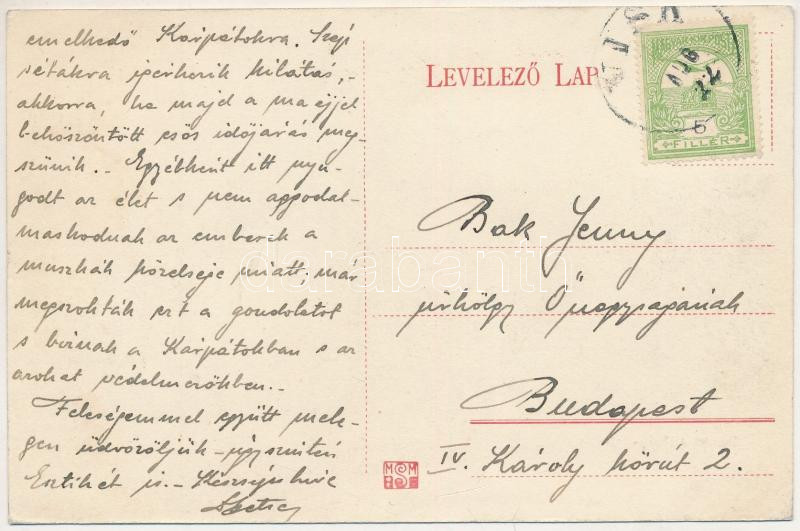 emelkedő Kárpátokra. Szép
sétákra igérkezik kilátás,-
akkorra, ha majd a ma éjjel
beköszöntött esős időjárás meg-
szünik.. Egyébként itt nyu-
godt az élet s nem aggodal-
maskodnak az emberek a
muszkák közelsége miatt; már
megszokták ezt a gondolatot
s biznak a Kárpátokban s az
azokat védelmezőkben..-
Feleségemmel együtt mele-
gen üdvözöljük - ugyszintén
Esztikét is.-
LEVELEZŐ LAP
AUG
22
5
FILLÉR
Bak Jenny
urhölgy Őnagyságának
Budapest
IV. Károly körút 2.
MSM
darabanth